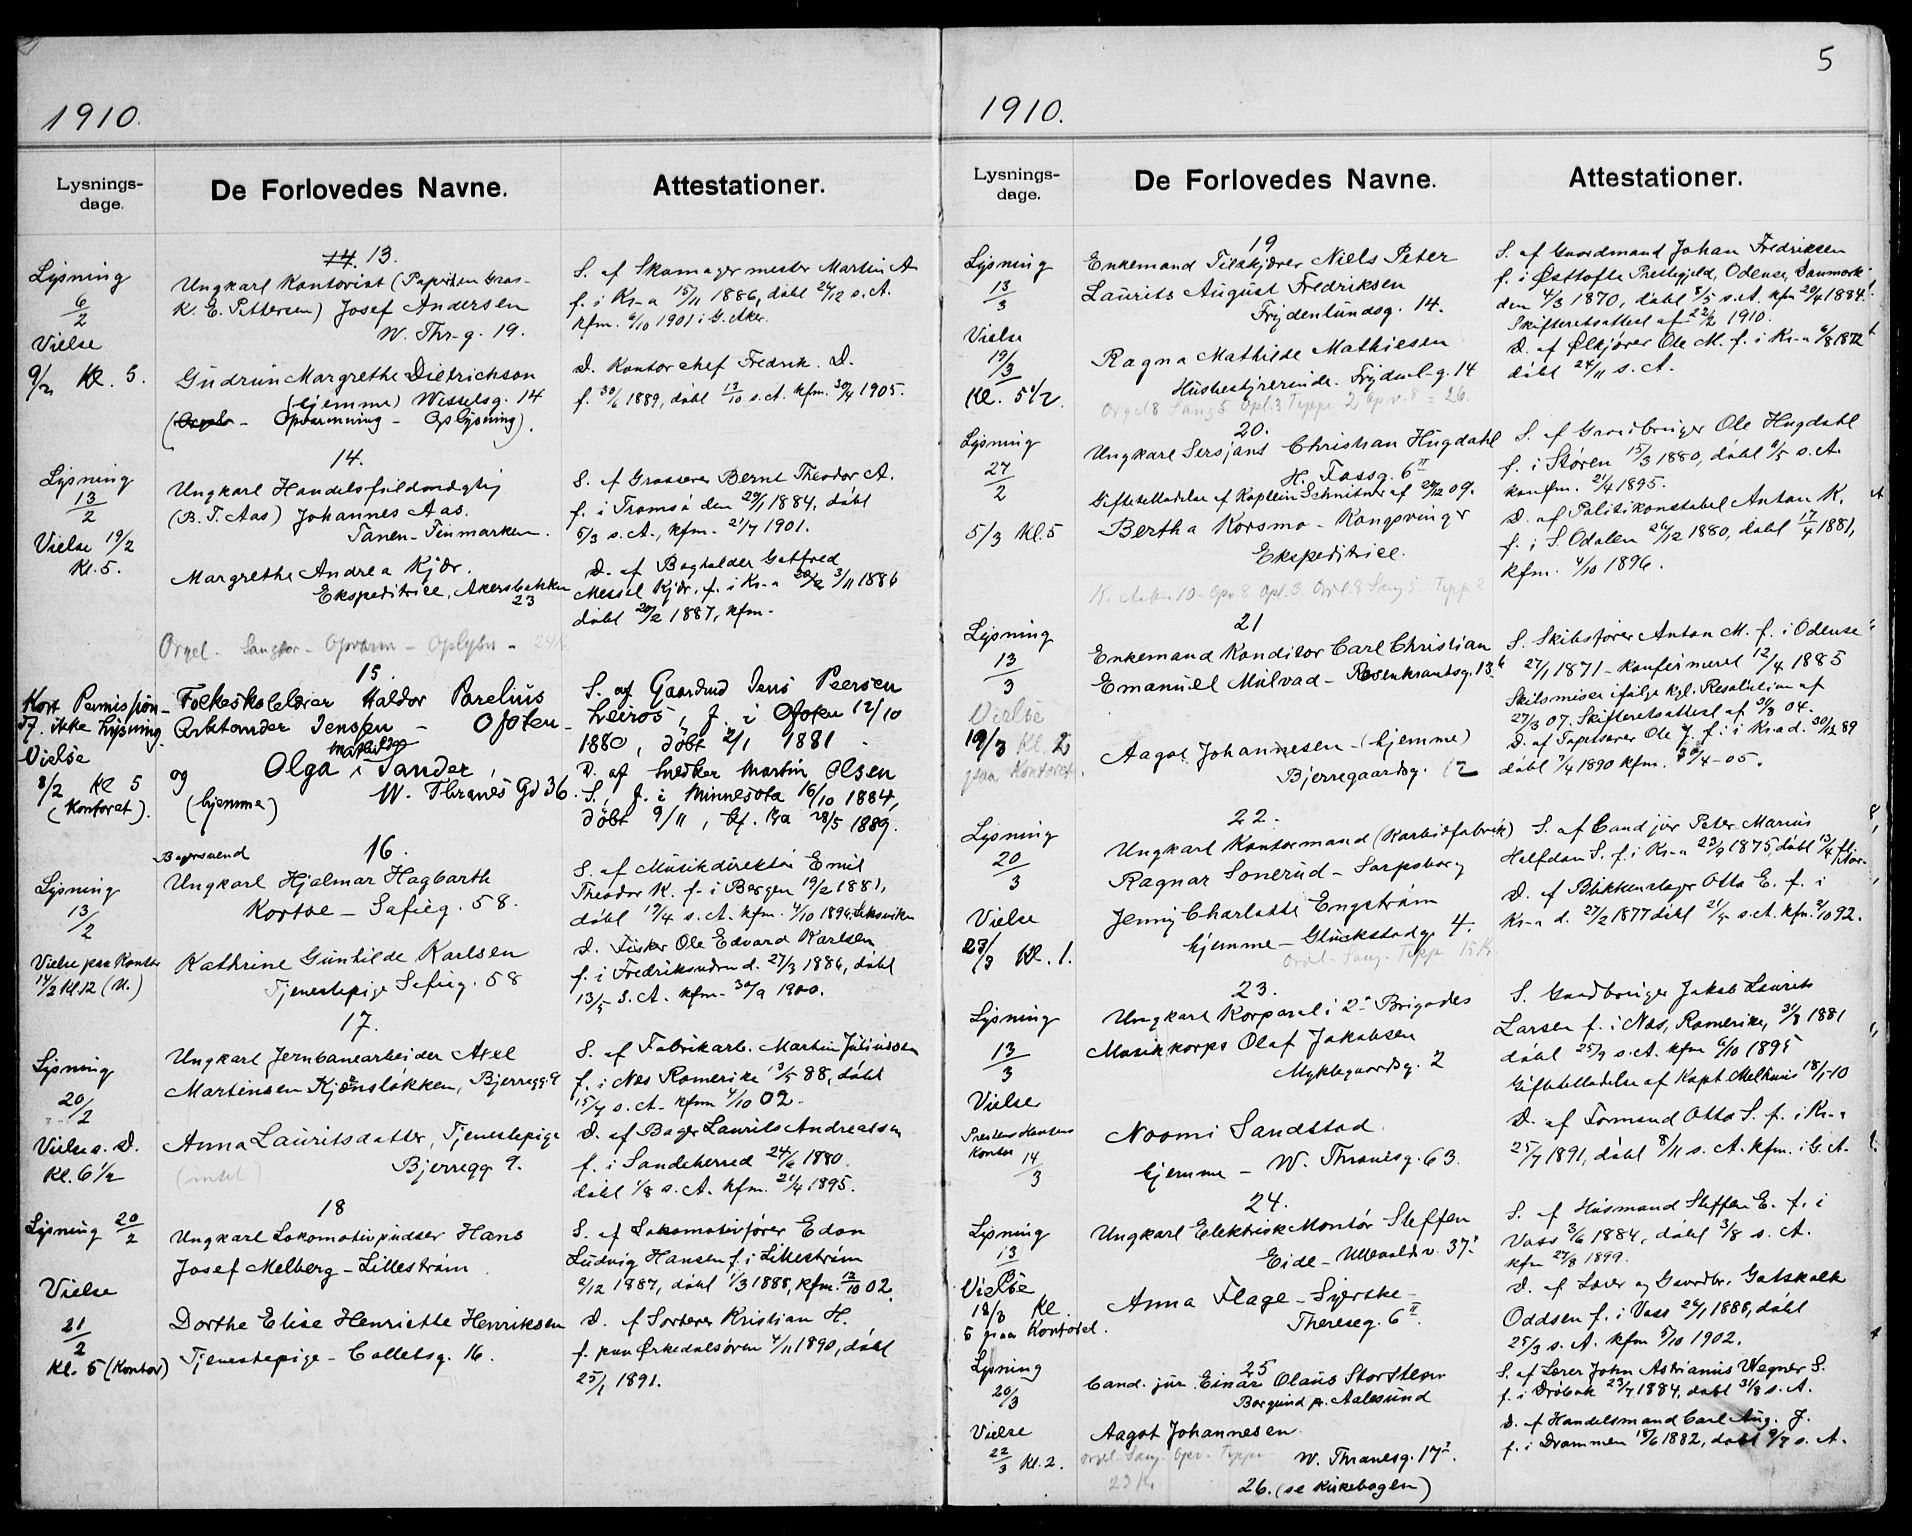 1910.
Lysnings-
dage.
De Forlovedes Navne.
Attestationer.
14. 13.
Lysning
6/2
Vielse
9/2 Kl. 5.
Ungkarl Kontorist (Papirhen Gros-
K. E. Pettersen) Josef Andersen
W. Thr-g. 19.
Gudrun Margrethe Dietrichson
(hjemme) Wesselsg. 14
(Orgel - Opvarmning - Oplysning).
S. af Skomagermester Martin A
f. i Kr-a 15/11 1886, døbt 26/12 s. A.
kfm. 6/10 1901 i G. Aker.
D. Kontorchef Fredrik. D.
f. 30/6 1889, døbt 13/10 s. A. kfm. 30/4 1905.
14.
Lysning
13/2
Vielse 19/2
Kl. 5.
Ungkarl Handelsfuldmægtig
(B. T. Aas) Johannes Aas.
Tanen - Finmarken.
Margrethe Andrea Kjær.
Ekspeditrice, Akersbakken
23
S. af Grosserer Bernt Theodor A.
f. i Tromsø den 29/1 1884, døbt
5/3 s. A., kfm. 21/7 1901.
D. af Bogholder Gotfred
Messel Kjær, f. i Kr-a 3/11 1886
døbt 20/2 1887, kfm.-
Orgel - Sangkor - Opvarm - Oplysn - 24 K
15.
Kort Permission
Df. ikke Lysning.
Vielse
8/2 Kl 5
(Kontoret).
Folkeskolelærer Haldor Parelius
Arbtander Jenssen - Ofoten
Mathilde
og Olga Sander,
(hjemme) W. Thranes Gd 36.
S. af Gaardbrd Jens Peersen
Leiros, f. i Ofoten 12/10
1880, døbt 2/1 1881.
D. af Snedker Martin Olsen
S., f. i Minnesota 16/10 1884,
døbt 9/11, kf. Kra 28/5 1889.
16.
Bagersvend
Lysning
13/2
Vielse paa Kontor
14/2 Kl. 12 (U.)
Ungkarl Hjalmar Hagbarth
Kortoe - Sofieg. 58.
Kathrine Gunhilde Karlsen
Tjenestepige Sofieg. 58
S. af Musikdirektør Emil
Theodor K. f. i Bergen 19/2 1881,
døbt 17/4 s. A. kfm. 4/10 1896 Leksviken
D. Fisker Ole Edvard Karlsen
f. i Fredriksværn d. 27/3 1886, døbt
13/5 s. A. kfm- 30/9 1900.
17.
Lysning
20/2
Vielse s. D.
Kl. 6 1/2
Ungkarl Jernbanearbeider Axel
Martinsen Kjønsløkken, Bjerregg. 9
Anna Lauritsdatter, Tjenestepige
(intet) Bjerregg 9.
S. af Fabrikarb. Martin Juliussen
f. i Næs Romerike 13/5 88, døbt
15/7 s. A. kfm 4/10 02.
D. af Bager Laurits Andreassen
f. i Sandeherred 24/6 1880
døbt 1/8 s. A. kfm. 21/4 1895.
18
Lysning 20/2
Vielse
21/2
Kl. 5 (Kontor)
Ungkarl Lokomotivpudser Hans
Josef Melberg - Lillestrøm
Dorthe Elise Henriette Henriksen
Tjenestepige - Colletsg. 16.
S. af Lokomotivfører Edon
Ludvig Hansen f. i Lillestrøm
2/12 1887, døbt 1/3 1888, kfm. 12/10 02.
D. af Sorterer Kristian H.
f. paa Ørkedalsøren 4/11 1890, døbt
25/1 1891.
5
1910.
Lysnings-
dage.
De Forlovedes Navne.
Attestationer.
19
Lysning
13/3
Vielse
19/3
Kl. 5 1/2
Enkemand Tilskjærer Niels Peter
Laurits August Fredriksen
Frydenlundsg. 14.
Ragna Mathilde Mathiesen
Husbestyrerinde. Frydenl-g. 14
Orgel 8 Sang 5 Opl. 3 Teppe 2 Opv. 8 = 26.
S. af Gaardmand Johan Fredriksen
f. i Østtofte Prestegjeld, Odense, Danmark
den 4/3 1870, døbt 8/5 s. A. kfm 20/4 1884.
Skifteretsattest af 22/2 1910.
D. af Ølkjører Ole M. f. i Kr-a 6/8 1872
døbt 24/11 s. A.
20.
Lysning
27/2
5/3 Kl. 5
Ungkarl Sersjant Christian Hugdahl
H. Fossg. 6 II
Giftetilladelse af Kaptein Schnitler af 29/12 09.
Bertha Korsmo - Kongsvinger
Ekspeditrice.
S. af Gaardbruger Ole Hugdahl
f. i Støren 15/3 1880, døbt 6/5 s. A.
konfm. 21/4 1895.
D. af Politikonstabel Anton K.
f. i S. Odalen 26/12 1880, døbt 17/4 1881,
kfm. 4/10 1896.
21
Lysning
13/3
Vielse
19/3 Kl. 2
paa Kontoret.
Enkemand Konditor Carl Christian
Emanuell Mulvad - Rosenkrantsg. 13 b
Aagot Johannesen - (hjemme)
Bjerregaardsg. 12
S. Skibsfører Anton M. f. i Odense
27/1 1871 - konfirmeret 12/4 1885
Skilsmisse ifølge kgl. Resolution af
27/3 07. Skifteretsattest af 31/3 04.
D. af Tapetserer Ole J. f. i Kr-a d. 30/12 89
døbt 7/4 1890 kfm. 30/4 - 05.
22.
Lysning
20/3
Vielse
23/3 Kl. 1.
Ungkarl Kontormand (Karbidfabrik)
Ragnar Sonerud - Sarpsborg
Jenny Charlotte Engstrøm
hjemme - Glückstadg. 4.
Orgel - Sang - Teppe 15 Kr.
S. af Cand jur Peter Marius
Halfdan S. f. i Kr-a 23/9 1875, døbt 13/4
D. af Blikkenslager Otto E. f. i
Kr-a d. 27/2 1877 døbt 21/5 s. A. kfm. 2/10 92.
23.
Lysning
13/3
Vielse
Presten Hansens
Kontor
14/3
Ungkarl Korporal i 2. Brigades
Musikkorps Olaf Jakobsen
Myklegaardsg. 2
Noomi Sandstad
hjemme - W. Thranesg. 63.
S. Gaardbruger Jakob Laurits
Larsen f. i Næs, Romerike, 31/8 1881
døbt 25/9 s. A. kfm 6/10 1895
Giftetilladelse af Kapt. Melhuus 18/1-10
D. af Formand Otto S. f. i Kr-a
25/7 1891, døbt 8/11 s. A. kfm. i G. A.
24.
Lysning
13
Vielse
18/3 Kl.
5 paa Kontoret.
Ungkarl Elektrisk Montør Steffen
Eide - Ullevaalsv. 37.
Anna Flage - Syerske -
Thereseg. 6 II.
S. af Husmand Steffen E. f. i
Voss 3/6 1884, døbt 3/8 s. A.
kfm 27/8 1899.
D. af Lærer og Gaardbr. Gotskalk
Oddsen f. i Voss 26/1 1888, døbt
25/3 s. A. kfm 5/10 1902.
25
Lysning
20/3
Vielse
22/3 Kl. 2.
Cand. jur. Einar Olaus Storsteen
Borgund pr. Aalesund
Aagot Johannesen
Orgel - Sang - Opv. - Teppe
W. Thranesg. 17 I.
23 Kr.
S. af Lærer John Astrianus Wegner S.
f. i Drøbak 23/7 1884, døbt 31/8 s. A.
D. af Handelsmand Carl Aug. J.
f. i Drammen 18/6 1882, døbt 9/7 s. A.
26. (se kirkebogen)